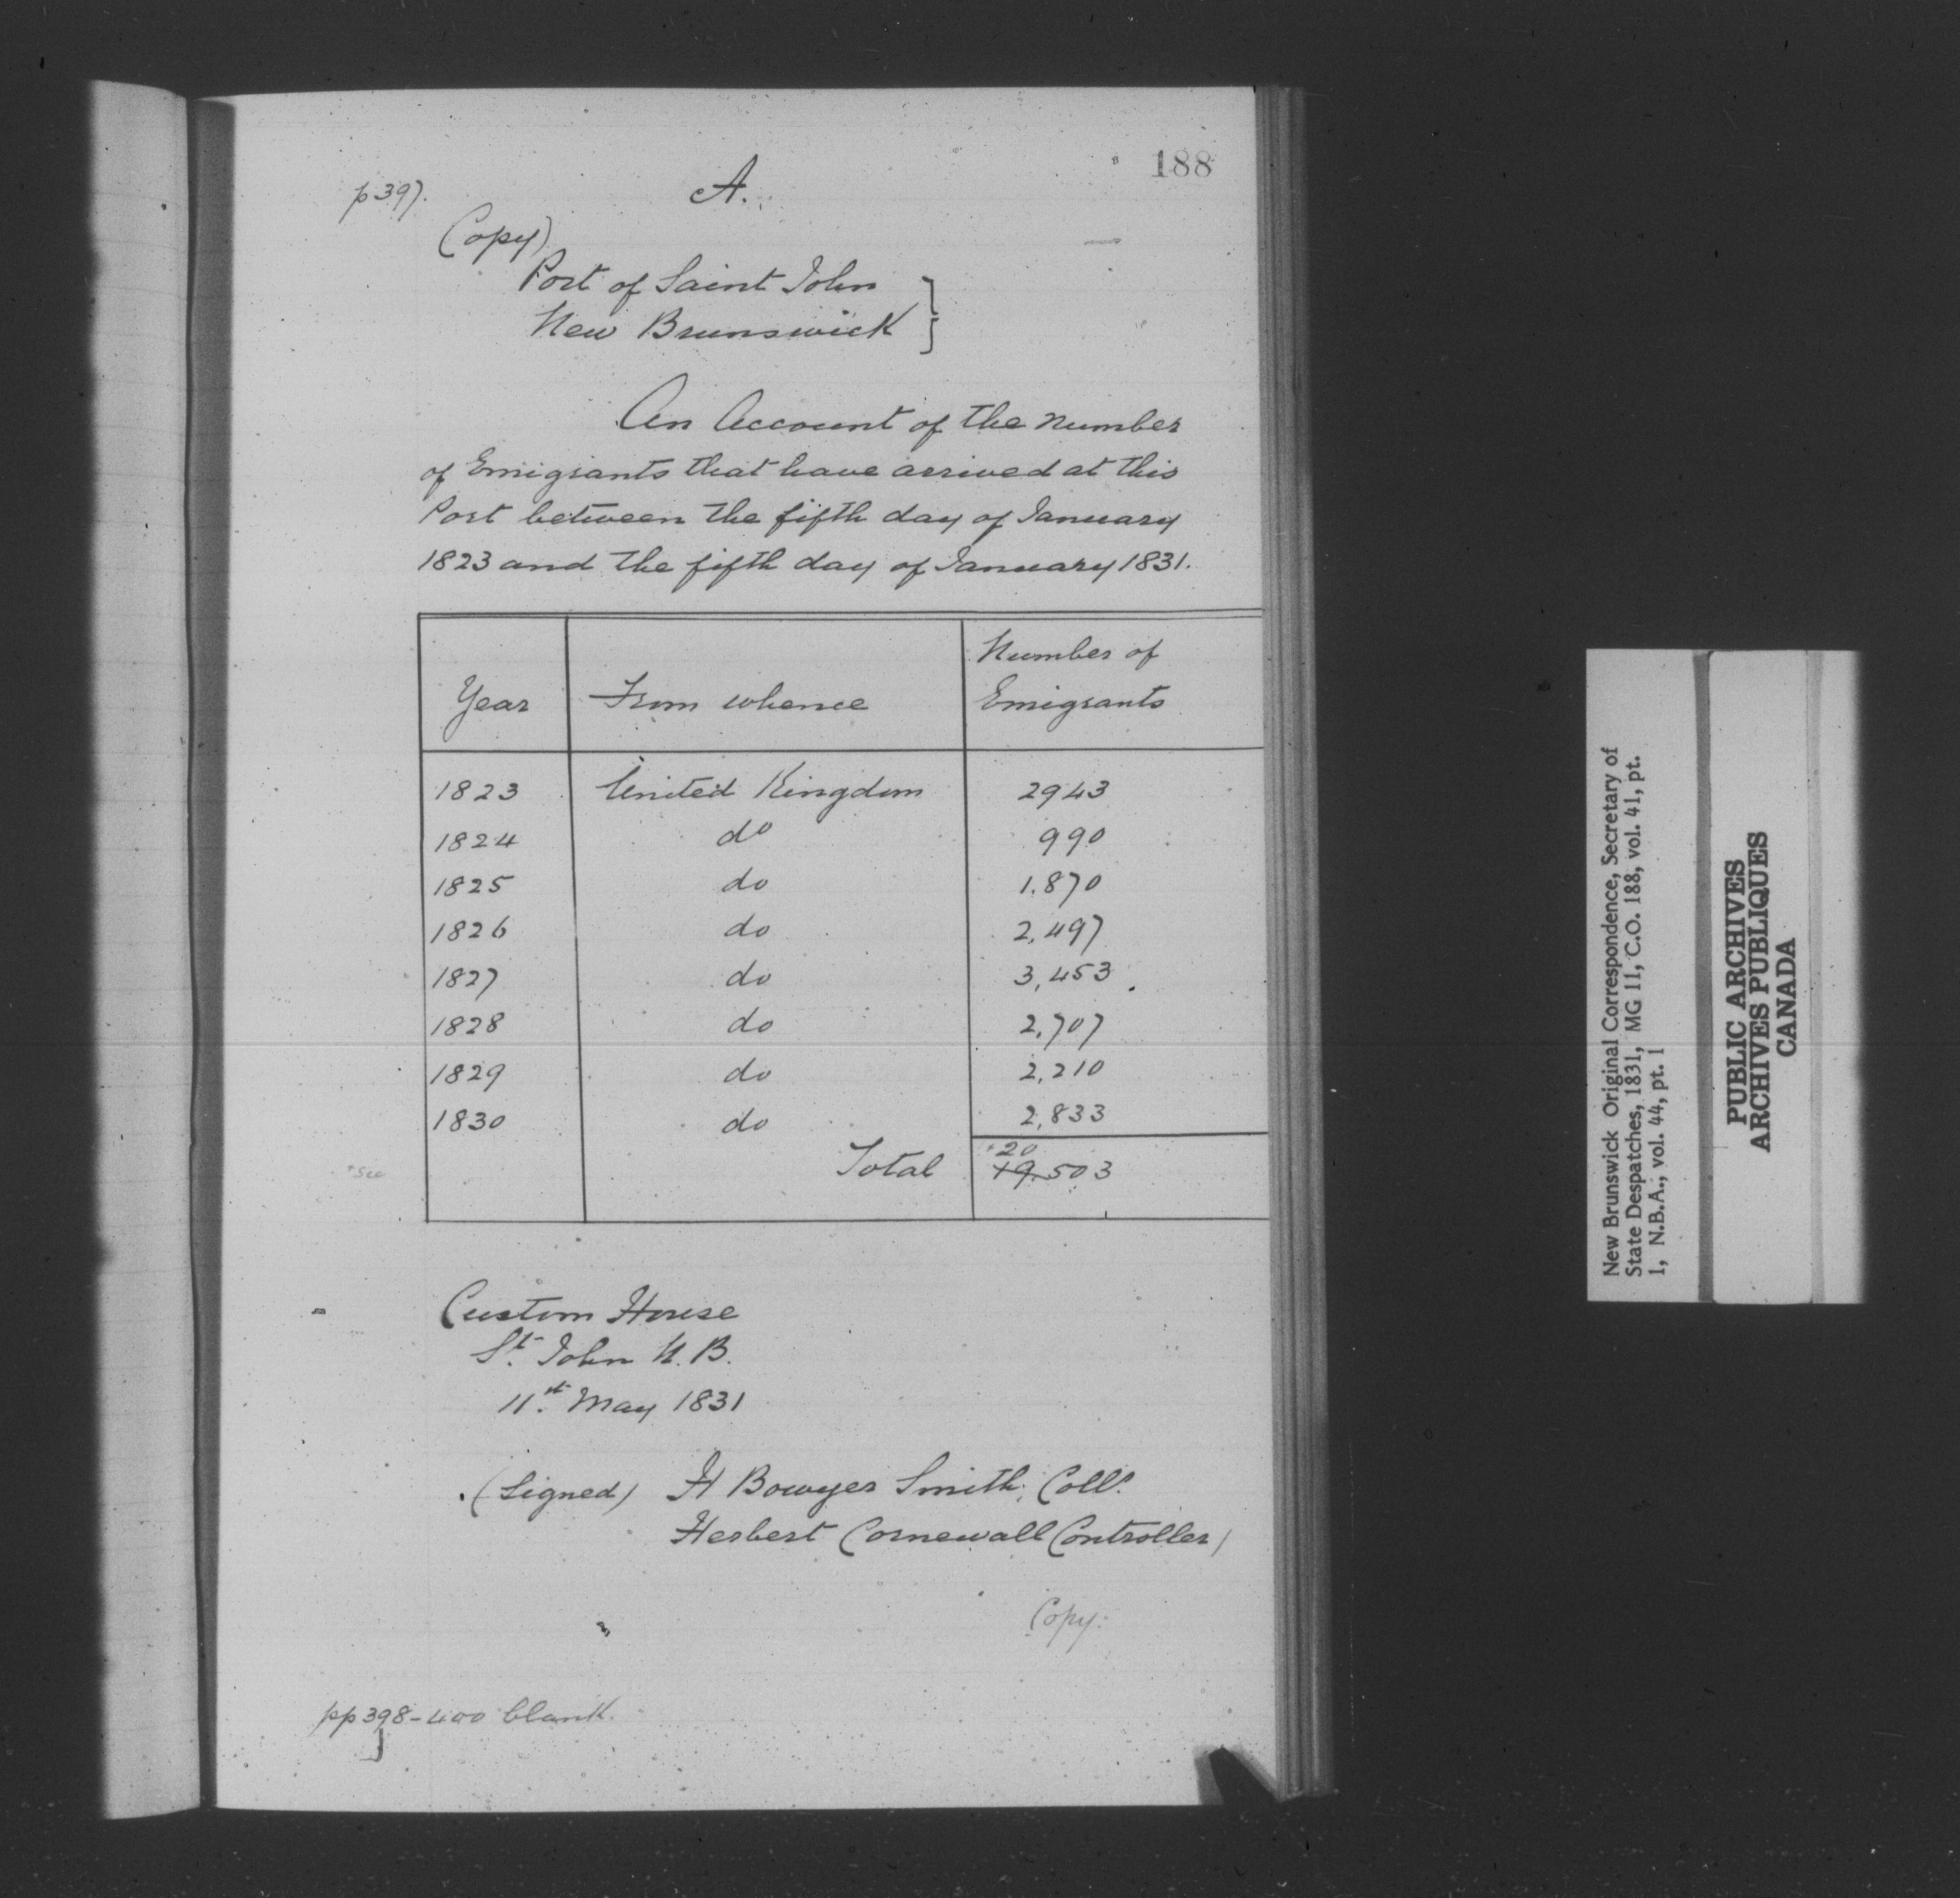 188
p 397.
A.
(Copy)
Port of Saint John
New Brunswick
An Account of the number
of Emigrants that have arrived at this
Port between the fifth day of January
1823 and the fifth day of January 1831.
Year From whence Number of Emigrants
1823 United Kingdom 2943
1824 do 990
1825 do 1.870
1826 do 2,497
1827 do 3,453.
1828 do 2,707
1829 do 2,210
1830 do 2,833
20
*See Total 19.503
Custom House
St. John N.B.
11st. May 1831
(Signed) H Bowyer Smith, Collr.
Herbert Cornewall Controller
Copy.
pp 398-400 blank.
New Brunswick Original Correspondence, Secretary of
State Despatches, 1831, MG 11, C.O. 188, vol. 41, pt.
1, N.B.A., vol. 44, pt. 1
PUBLIC ARCHIVES
ARCHIVES PUBLIQUES
CANADA